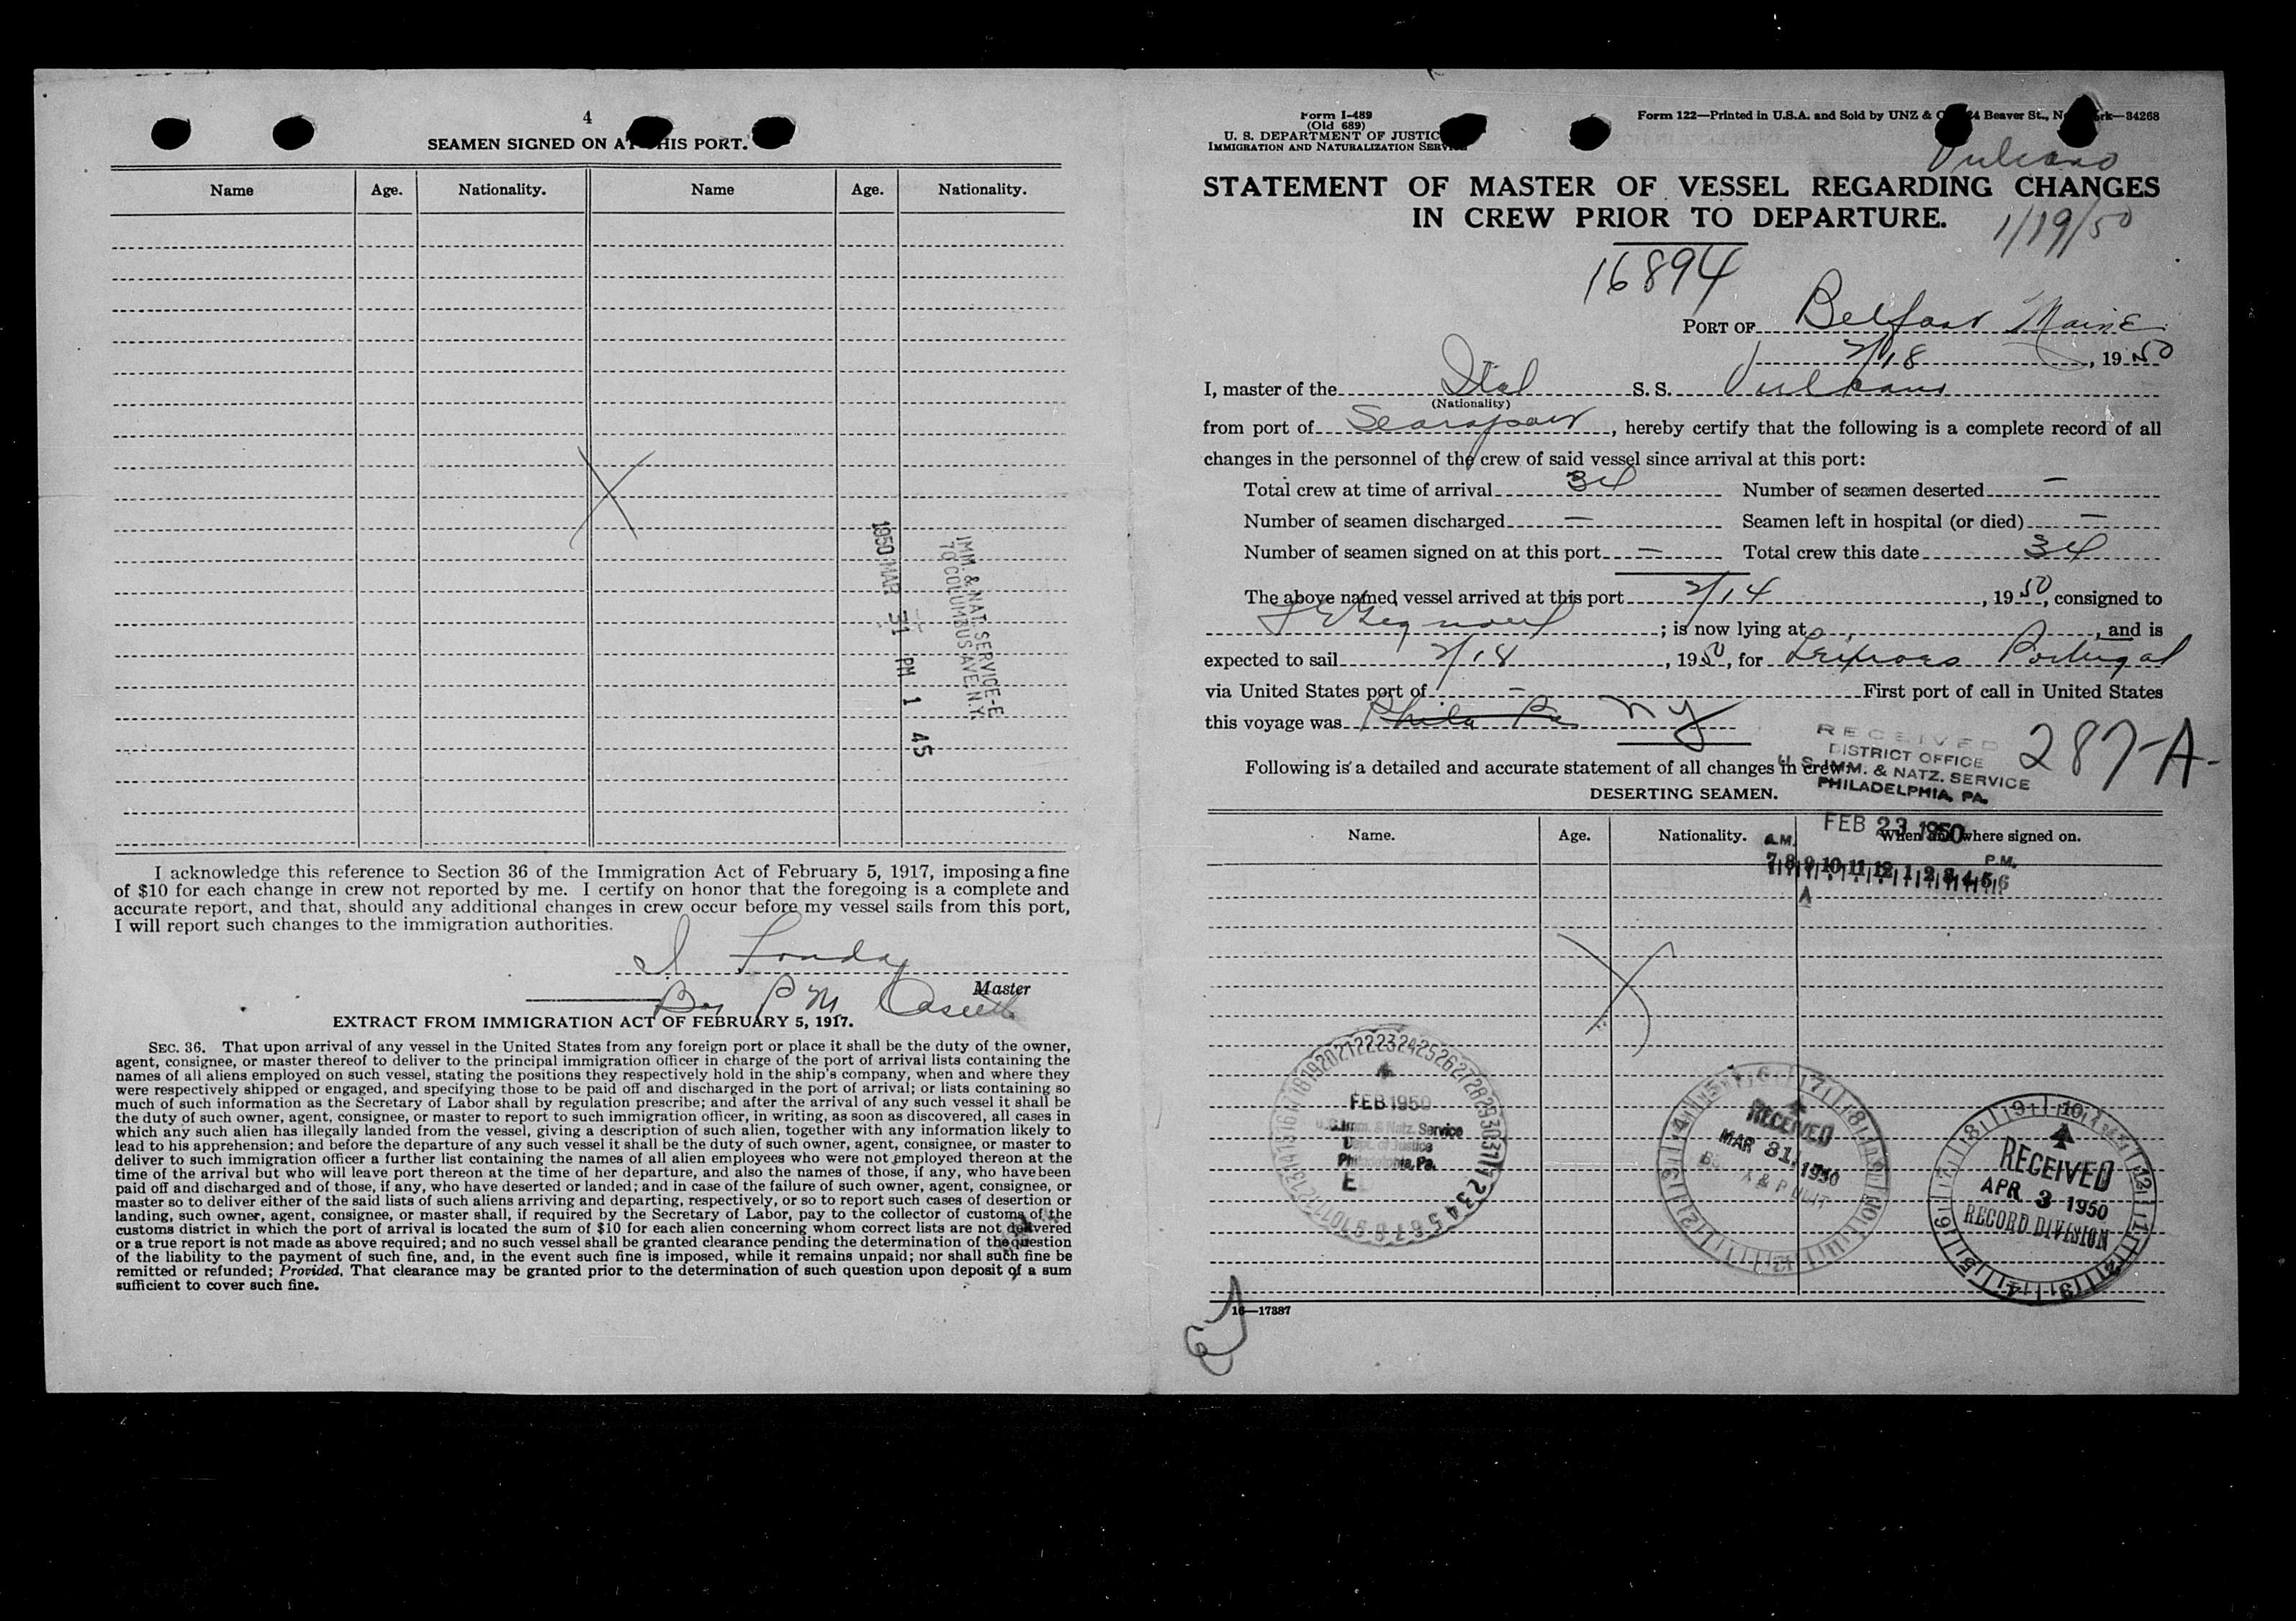 4
SEAMEN SIGNED ON AT THIS PORT.
Name Age. Nationality. Name Age. Nationality.
1950 MAR 31 PM 1 45
IMM. & NAT. SERVICE-E
70 COLUMBUS AVE. N.Y.
I acknowledge this reference to Section 36 of the Immigration Act of February 5, 1917, imposing a fine
of $10 for each change in crew not reported by me. I certify on honor that the foregoing is a complete and
accurate report, and that, should any additional changes in crew occur before my vessel sails from this port,
I will report such changes to the immigration authorities.
Master
By P M
EXTRACT FROM IMMIGRATION ACT OF FEBRUARY 5, 1917.
SEC. 36. That upon arrival of any vessel in the United States from any foreign port or place it shall be the duty of the owner,
agent, consignee, or master thereof to deliver to the principal immigration officer in charge of the port of arrival lists containing the
names of all aliens employed on such vessel, stating the positions they respectively hold in the ship's company, when and where they
were respectively shipped or engaged, and specifying those to be paid off and discharged in the port of arrival; or lists containing so
much of such information as the Secretary of Labor shall by regulation prescribe; and after the arrival of any such vessel it shall be
the duty of such owner, agent, consignee, or master to report to such immigration officer, in writing, as soon as discovered, all cases in
which any such alien has illegally landed from the vessel, giving a description of such alien, together with any information likely to
lead to his apprehension; and before the departure of any such vessel it shall be the duty of such owner, agent, consignee, or master to
deliver to such immigration officer a further list containing the names of all alien employees who were not employed thereon at the
time of the arrival but who will leave port thereon at the time of her departure, and also the names of those, if any, who have been
paid off and discharged and of those, if any, who have deserted or landed; and in case of the failure of such owner, agent, consignee, or
master so to deliver either of the said lists of such aliens arriving and departing, respectively, or so to report such cases of desertion or
landing, such owner, agent, consignee, or master shall, if required by the Secretary of Labor, pay to the collector of customs of the
customs district in which the port of arrival is located the sum of $10 for each alien concerning whom correct lists are not delivered
or a true report is not made as above required; and no such vessel shall be granted clearance pending the determination of the question
of the liability to the payment of such fine, and, in the event such fine is imposed, while it remains unpaid; nor shall such fine be
remitted or refunded; Provided, That clearance may be granted prior to the determination of such question upon deposit of a sum
sufficient to cover such fine.
Form I-489
(Old 689)
U. S. DEPARTMENT OF JUSTIC
IMMIGRATION AND NATURALIZATION SERV
Form 122—Printed in U.S.A. and Sold by UNZ & C 24 Beaver St., N rk—34268
Vulcano
STATEMENT OF MASTER OF VESSEL REGARDING CHANGES
IN CREW PRIOR TO DEPARTURE.
1/19/50
16894
PORT OF Belfast Maine
2/18, 1950
I, master of the Ital S. S. Vulcano
(Nationality)
from port of Searsport, hereby certify that the following is a complete record of all
changes in the personnel of the crew of said vessel since arrival at this port:
Total crew at time of arrival 34 Number of seamen deserted —
Number of seamen discharged — Seamen left in hospital (or died) —
Number of seamen signed on at this port — Total crew this date 34
The above named vessel arrived at this port 2/14, 1950, consigned to
; is now lying at , and is
expected to sail 2/18, 1950, for Leixoes Portugal
via United States port of — First port of call in United States
this voyage was Phila Pa NY
RECEIVED
DISTRICT OFFICE
U. S. IMM. & NATZ. SERVICE
PHILADELPHIA, PA.
287-A-
Following is a detailed and accurate statement of all changes in crew.
DESERTING SEAMEN.
FEB 23 1950
Name. Age. Nationality. When and where signed on.
A.M. P.M.
7 8 9 10 11 12 1 2 3 4 5 6
FEB 1950
U.S. Imm. & Natz. Service
Dept. of Justice
Philadelphia, Pa.
RECEIVED
MAR 31, 1950
RECEIVED
APR 3 1950
RECORD DIVISION
16—17387